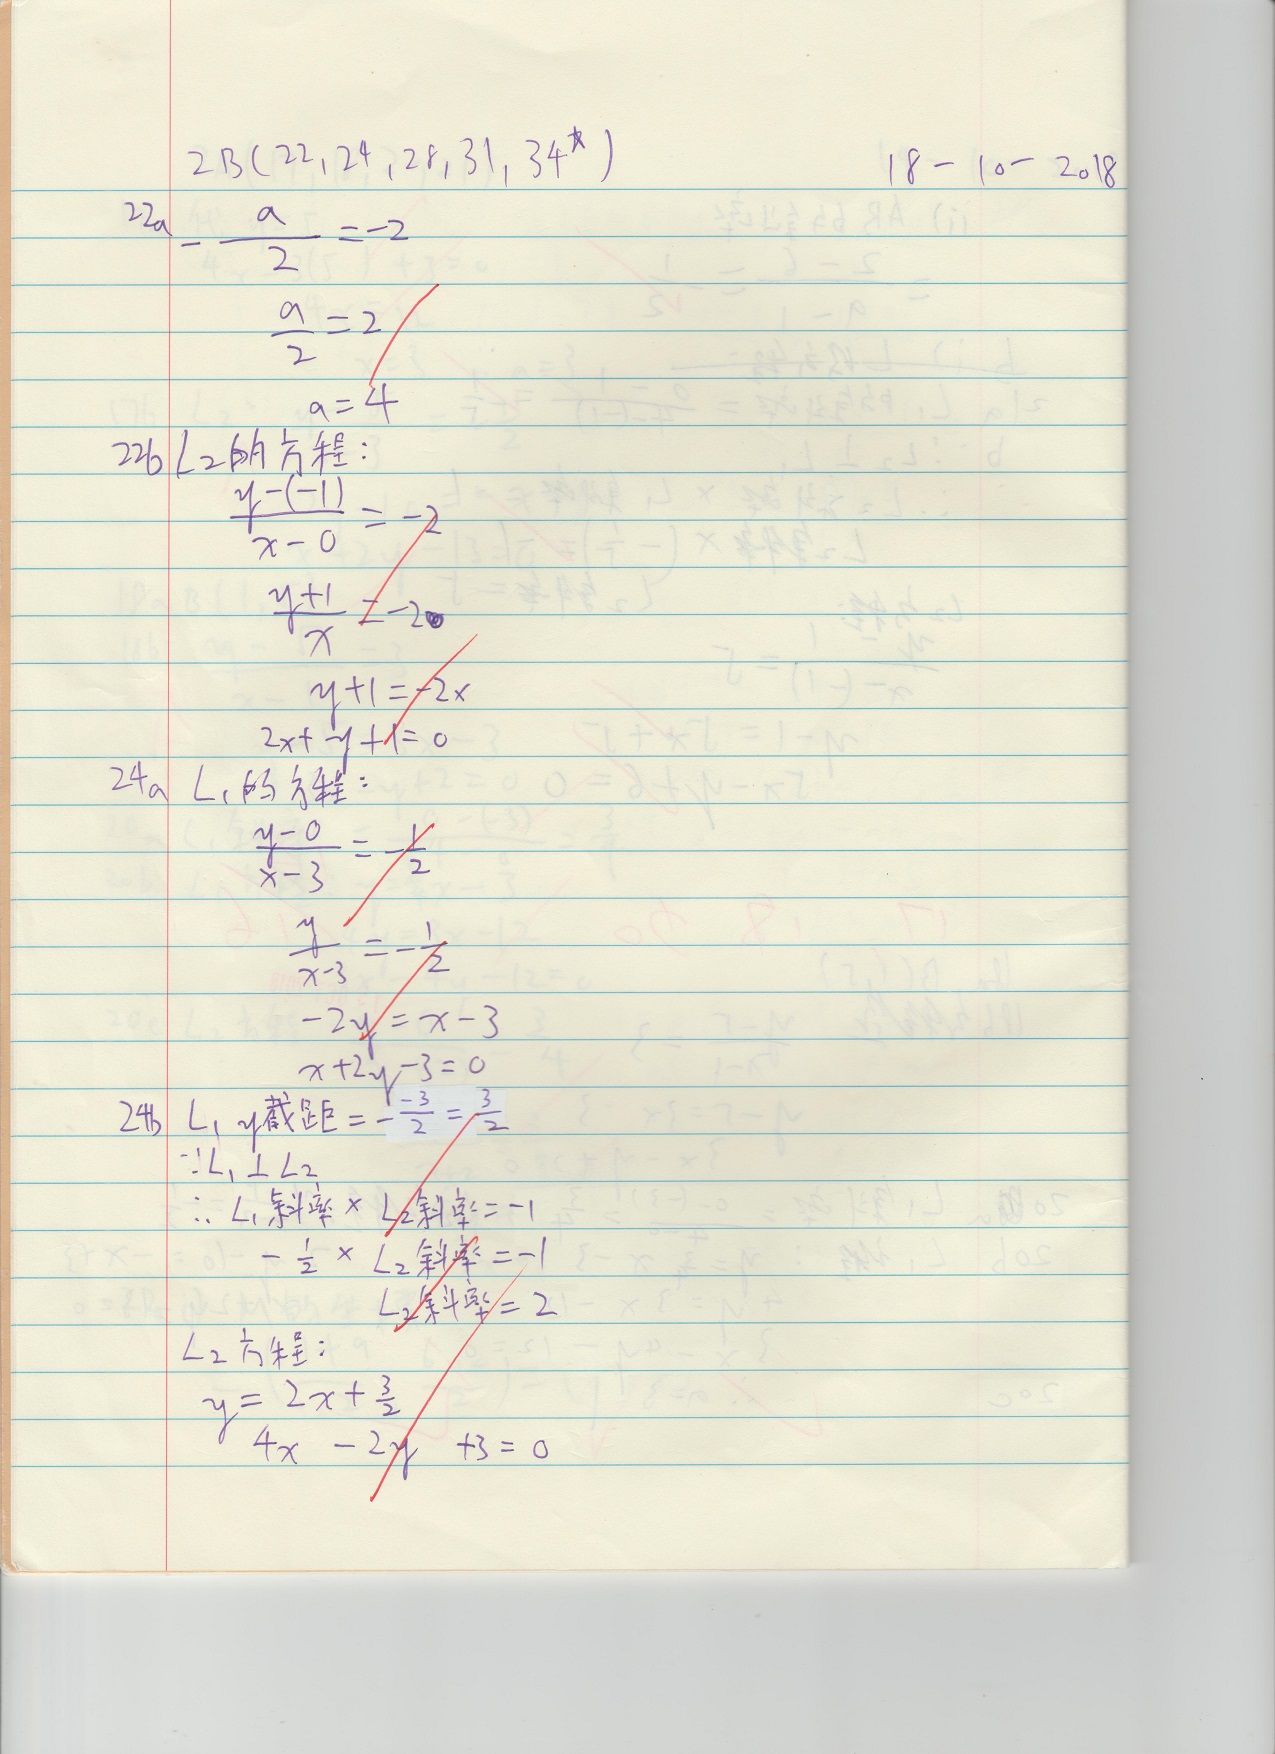 2B(22, 24, 28, 31, 34*) 18-10-2018
22a -a/2 = -2
a/2 = 2
a = 4
22b L₂的方程:
(y-(-1))/(x-0) = -2
(y+1)/x = -2
y+1 = -2x
2x+y+1=0
24a L₁的方程:
(y-0)/(x-3) = -1/2
y/(x-3) = -1/2
-2y = x-3
x+2y-3=0
24b L₁ y截距 = -(-3/2) = 3/2
∵L₁⊥L₂
∴L₁斜率 × L₂斜率 = -1
-1/2 × L₂斜率 = -1
L₂斜率 = 2
L₂方程:
y = 2x + 3/2
4x - 2y + 3 = 0